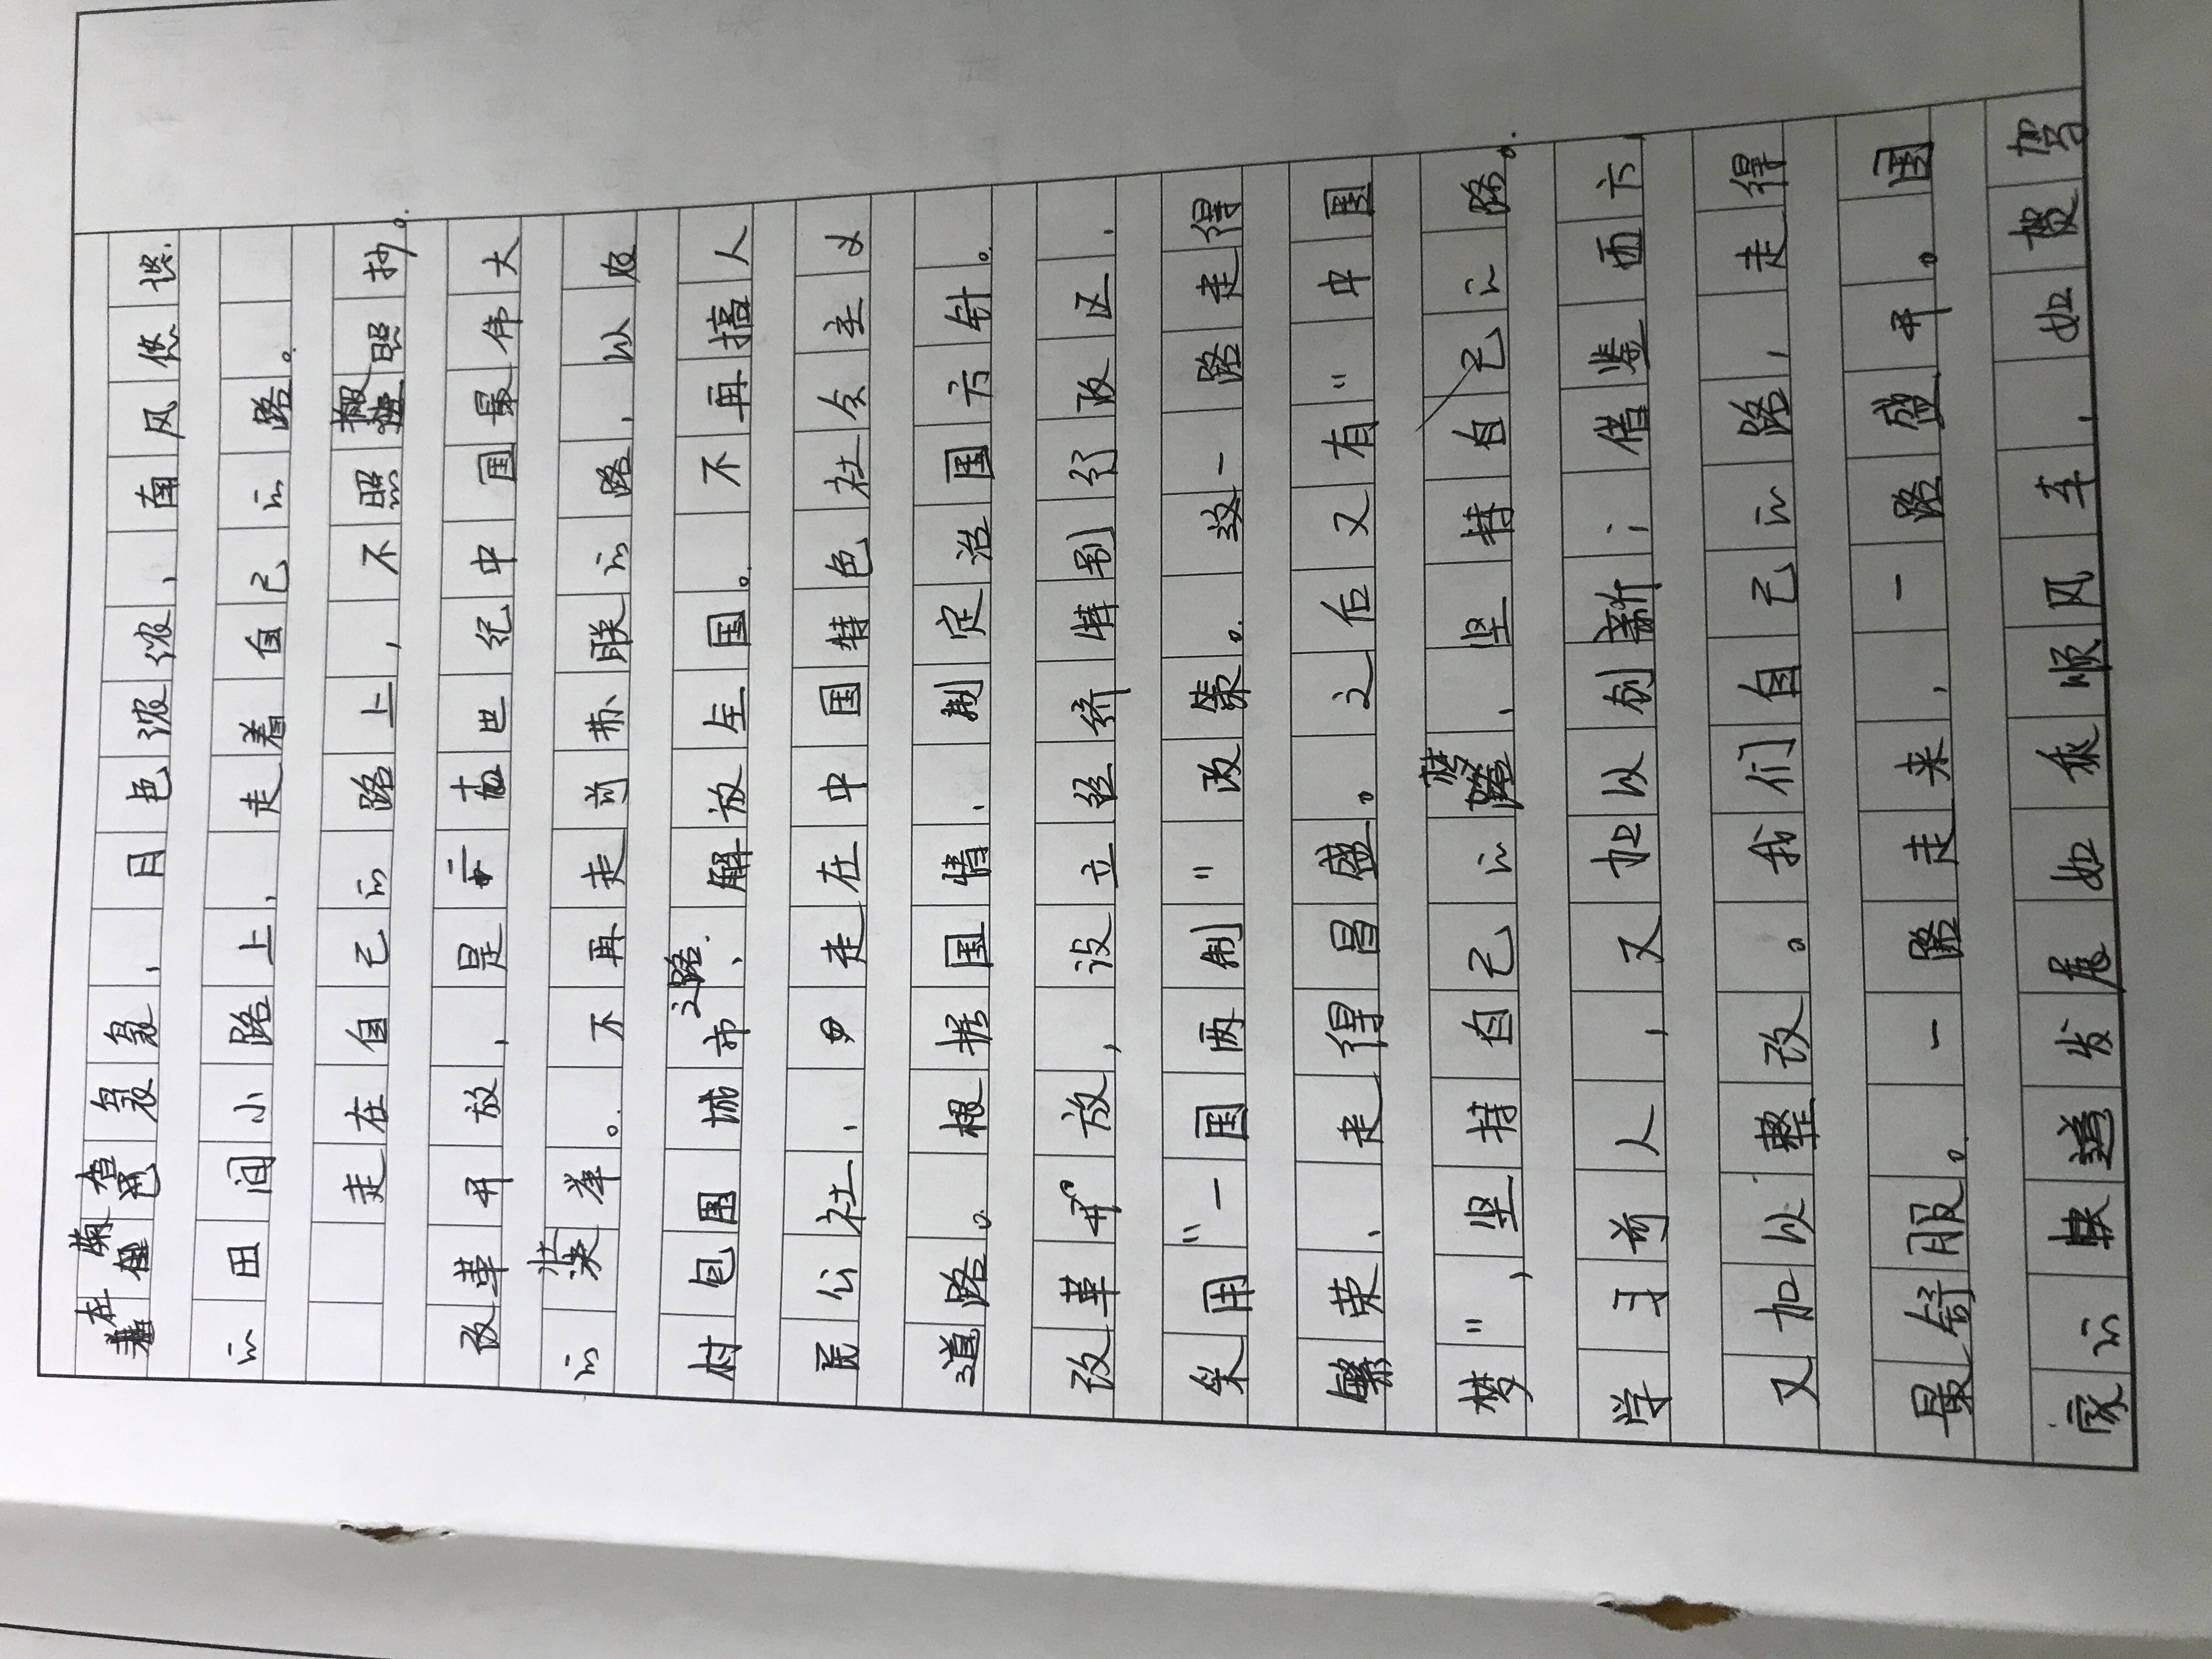 在菊香袅袅，月色浓浓，南风悠悠
的田间小路上，走着自己的路。
走在自己的路上，不照搬照抄。
改革开放，是二十世纪中国最伟大
的壮举。不再走前苏联的路，以农
村包围城市之路，解放全国。不再搞人
民公社，走在中国特色社会主义
道路。根据国情，制定治国方针。
改革开放，设立经济特别行政区，
采用"一国两制"政策。致一路走得
繁荣、走得昌盛。之后又有"中国
梦"，坚持自己的梦，坚持自己的路。
学习前人，又加以创新；借鉴西方，
又加以整改。我们自己的路，走得
最舒服。一路走来，一路盛开。国
家的快速发展如乘顺风车，如拨驾